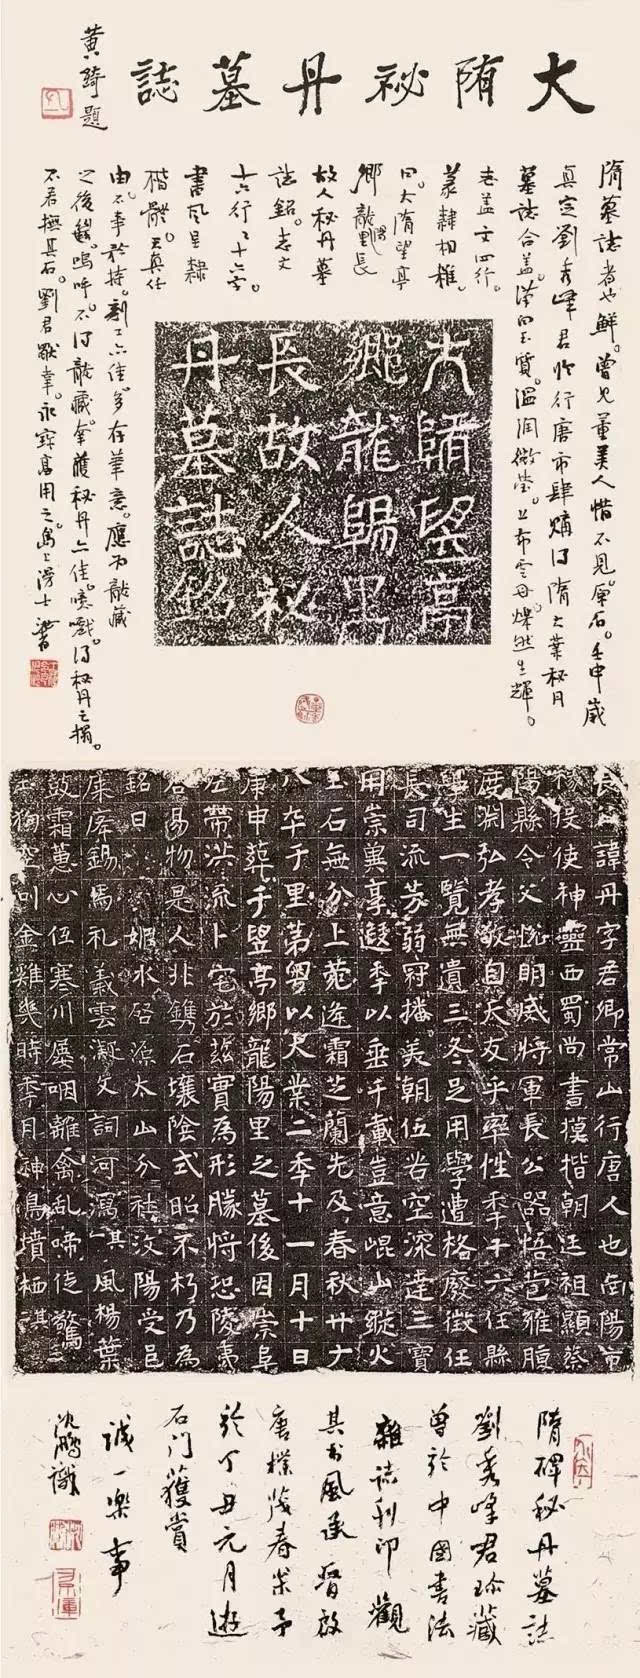 大隋祕丹墓誌
黄綺題
隋墓誌者也鮮。曾見董美人惜不見原石。壬申歲
真定劉秀峰君昨行唐市肆購得隋大業秘丹
墓誌合蓋。漢白玉質。溫潤微瑩。上布雲丹燦然生輝。
志蓋文四行。
篆隸相雜。
曰。大隋望亭
鄉龍陽里長
故人秘丹墓
誌銘。志文
十六行行十六字。
書風呈隸
楷體。天真任
由。不事矜持。刻工亦佳。多存筆意。應為龍藏
之後繼。嗚呼。不得龍藏。拿獲秘丹亦佳。噫嚱。得秘丹之搨。
不若撫其石。劉君厥幸。永寶寫用之。
大隋望亭
鄉龍陽里
長故人祕
丹墓誌銘
長諱丹字君卿常山行唐人也
授使神靈西蜀尚書摸楷朝廷祖顯蔡
陽縣令父悅明威將軍長公器悟苞雅腹
度淵弘孝敬自天友乎率性季十六任縣
學生一覽無遺三冬足用學遭格廢徵任
長司流芳弱冠播美朝伍岩空深達三寶
用崇冀享遐季以垂千載豈意崐山縱火
玉石無分上菀逢霜芝蘭先及春秋廿九
八卒于里第粵以大業二季十一月十日
庚申葬于望亭鄉龍陽里之墓後因崇阜
左帶洪流卜宅於茲實為形勝恐陵夷
谷易物是人非鐫石壤陰式昭不朽乃為
銘曰 媚水啓源太山分社汶陽受邑
康庠錫馬礼義雲凝文詞河瀉其風楊葉
鼓霜蕙心伍寒川屡咽離禽乱啼徒驚
狗空叫金雞幾時季月神鳥墳栖其
隋碑秘丹墓誌
劉秀峰君珍藏
曾於中國書法
雜誌刊印觀
其書風承晉啟
唐樸茂春容予
於丁丑元月遊
石門獲賞
誠一樂事
沈鵬識